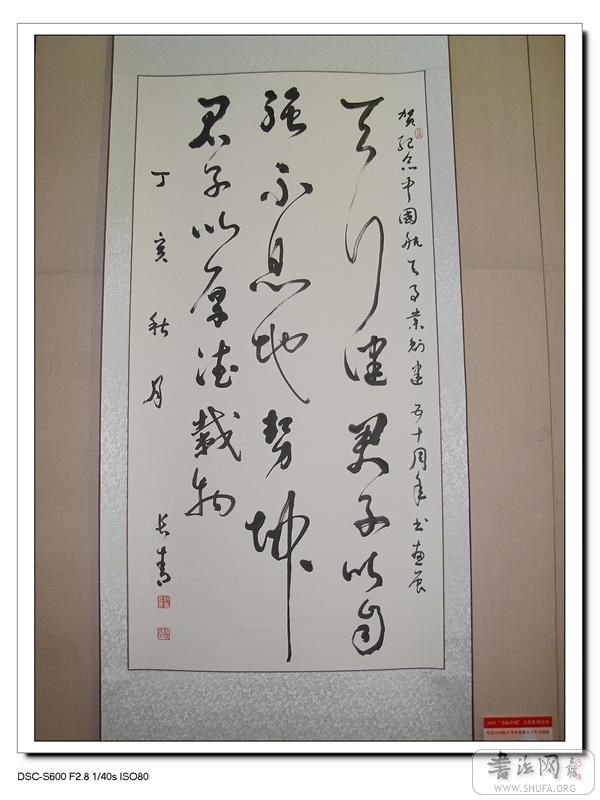 贺纪念中國航天事業创建五十周年书画展
天行健君子以自
强不息地势坤
君子以厚德载物
丁亥秋月 长青
DSC-S600 F2.8 1/40s ISO80
書法网
WWW.SHUFA.ORG